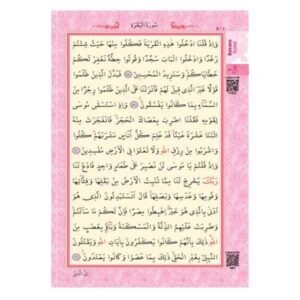 سُورَةُ الْبَقَرَةِ
وَإِذْ قُلْنَا ادْخُلُوا هَذِهِ الْقَرْيَةَ فَكُلُوا مِنْهَا حَيْثُ شِئْتُمْ
رَغَدًا وَادْخُلُوا الْبَابَ سُجَّدًا وَقُولُوا حِطَّةٌ نَغْفِرْ لَكُمْ
خَطَايَاكُمْ وَسَنَزِيدُ الْمُحْسِنِينَ فَبَدَّلَ الَّذِينَ ظَلَمُوا
قَوْلًا غَيْرَ الَّذِي قِيلَ لَهُمْ فَأَنْزَلْنَا عَلَى الَّذِينَ ظَلَمُوا رِجْزًا مِنَ
السَّمَاءِ بِمَا كَانُوا يَفْسُقُونَ وَإِذِ اسْتَسْقَى مُوسَى
لِقَوْمِهِ فَقُلْنَا اضْرِبْ بِعَصَاكَ الْحَجَرَ فَانْفَجَرَتْ مِنْهُ
اثْنَتَا عَشْرَةَ عَيْنًا قَدْ عَلِمَ كُلُّ أُنَاسٍ مَشْرَبَهُمْ كُلُوا
وَاشْرَبُوا مِنْ رِزْقِ اللَّهِ وَلَا تَعْثَوْا فِي الْأَرْضِ مُفْسِدِينَ
وَإِذْ قُلْتُمْ يَا مُوسَى لَنْ نَصْبِرَ عَلَى طَعَامٍ وَاحِدٍ فَادْعُ لَنَا
رَبَّكَ يُخْرِجْ لَنَا مِمَّا تُنْبِتُ الْأَرْضُ مِنْ بَقْلِهَا وَقِثَّائِهَا
وَفُومِهَا وَعَدَسِهَا وَبَصَلِهَا قَالَ أَتَسْتَبْدِلُونَ الَّذِي هُوَ
أَدْنَى بِالَّذِي هُوَ خَيْرٌ اهْبِطُوا مِصْرًا فَإِنَّ لَكُمْ مَا سَأَلْتُمْ
وَضُرِبَتْ عَلَيْهِمُ الذِّلَّةُ وَالْمَسْكَنَةُ وَبَاءُوا بِغَضَبٍ مِنَ
اللَّهِ ذَلِكَ بِأَنَّهُمْ كَانُوا يَكْفُرُونَ بِآيَاتِ اللَّهِ وَيَقْتُلُونَ
النَّبِيِّينَ بِغَيْرِ الْحَقِّ ذَلِكَ بِمَا عَصَوْا وَكَانُوا يَعْتَدُونَ
إِنَّ الَّذِينَ